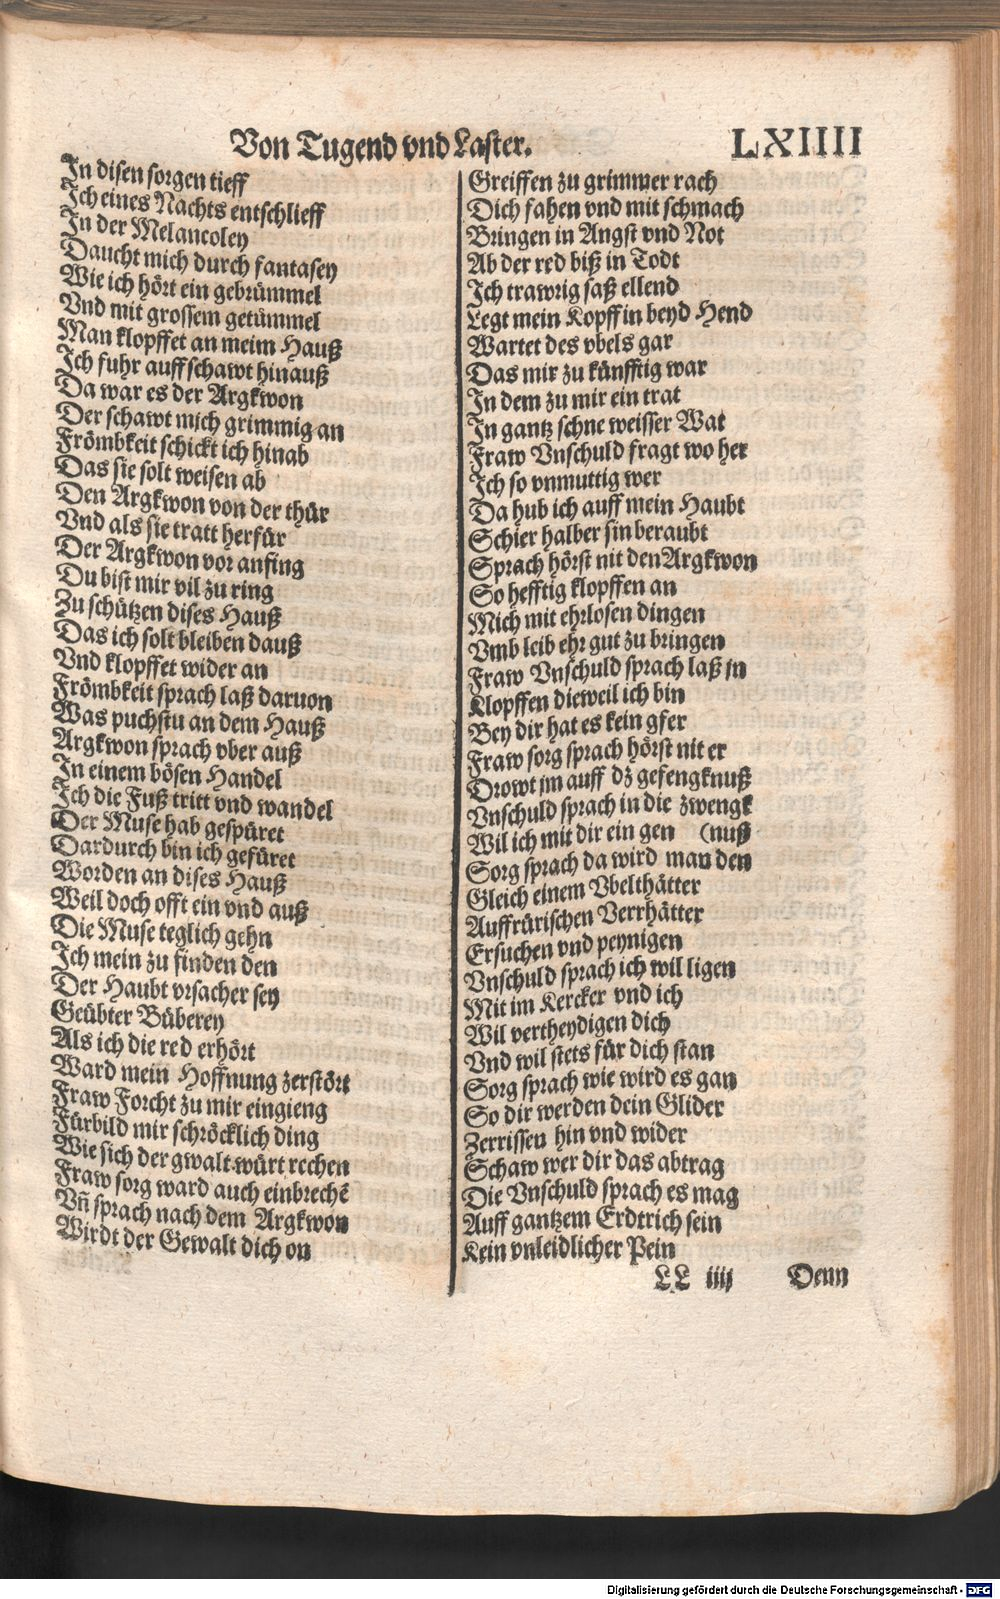 Von Tugend vnd Laster. LXIIII
In disen sorgen tieff
Ich eines Nachts entschlieff
In der Melancoley
Daucht mich durch fantasey
Wie ich hört ein gebrümmel
Vnd mit grossem getümmel
Man klopffet an meim Hauß
Ich fuhr auff schawt hinauß
Da war es der Argkwon
Der schawt mich grimmig an
Frömbkeit schickt ich hinab
Das sie solt weisen ab
Den Argkwon von der thür
Vnd als sie tratt herfür
Der Argkwon vor anfing
Du bist mir vil zu ring
Zu schützen dises Hauß
Das ich solt bleiben dauß
Vnd klopffet wider an
Frömbkeit sprach laß daruon
Was puchstu an dem Hauß
Argkwon sprach vber auß
In einem bösen Handel
Ich die Fuß tritt vnd wandel
Der Muse hab gespüret
Dardurch bin ich gefüret
Worden an dises Hauß
Weil doch offt ein vnd auß
Die Muse teglich gehn
Ich mein zu finden den
Der Haubt vrsacher sey
Geübter Büberey
Als ich die red erhört
Ward mein Hoffnung zerstört
Fraw Forcht zu mir eingieng
Fürbild mir schröcklich ding
Wie sich der gwalt würt rechen
Fraw sorg ward auch einbrechē
Vñ sprach nach dem Argkwon
Wirdt der Gewalt dich on
Greiffen zu grimmer rach
Dich fahen vnd mit schmach
Bringen in Angst vnd Not
Ab der red biß in Todt
Ich trawrig saß ellend
Legt mein Kopff in beyd Hend
Wartet des vbels gar
Das mir zu künfftig war
In dem zu mir ein trat
In gantz schne weisser Wat
Fraw Vnschuld fragt wo her
Ich so vnmuttig wer
Da hub ich auff mein Haubt
Schier halber sin beraubt
Sprach hörst nit den Argkwon
So hefftig klopffen an
Mich mit ehrlosen dingen
Vmb leib ehr gut zu bringen
Fraw Vnschuld sprach laß jn
Klopffen dieweil ich bin
Bey dir hat es kein gfer
Fraw sorg sprach hörst nit er
Drowt jm auff dz gefengknuß
Vnschuld sprach in die zwengk
Wil ich mit dir ein gen (nuß
Sorg sprach da wird man den
Gleich einem Vbelthätter
Auffrürischen Verrhätter
Ersuchen vnd peynigen
Vnschuld sprach ich wil ligen
Mit im Kercker vnd ich
Wil vertheydigen dich
Vnd wil stets für dich stan
Sorg sprach wie wird es gan
So dir werden dein Glider
Zerrissen hin vnd wider
Schaw wer dir das abtrag
Die Vnschuld sprach es mag
Auff gantzem Erdtrich sein
Kein vnleidlicher Pein
LL iiij Denn
Digitalisierung gefördert durch die Deutsche Forschungsgemeinschaft - DFG